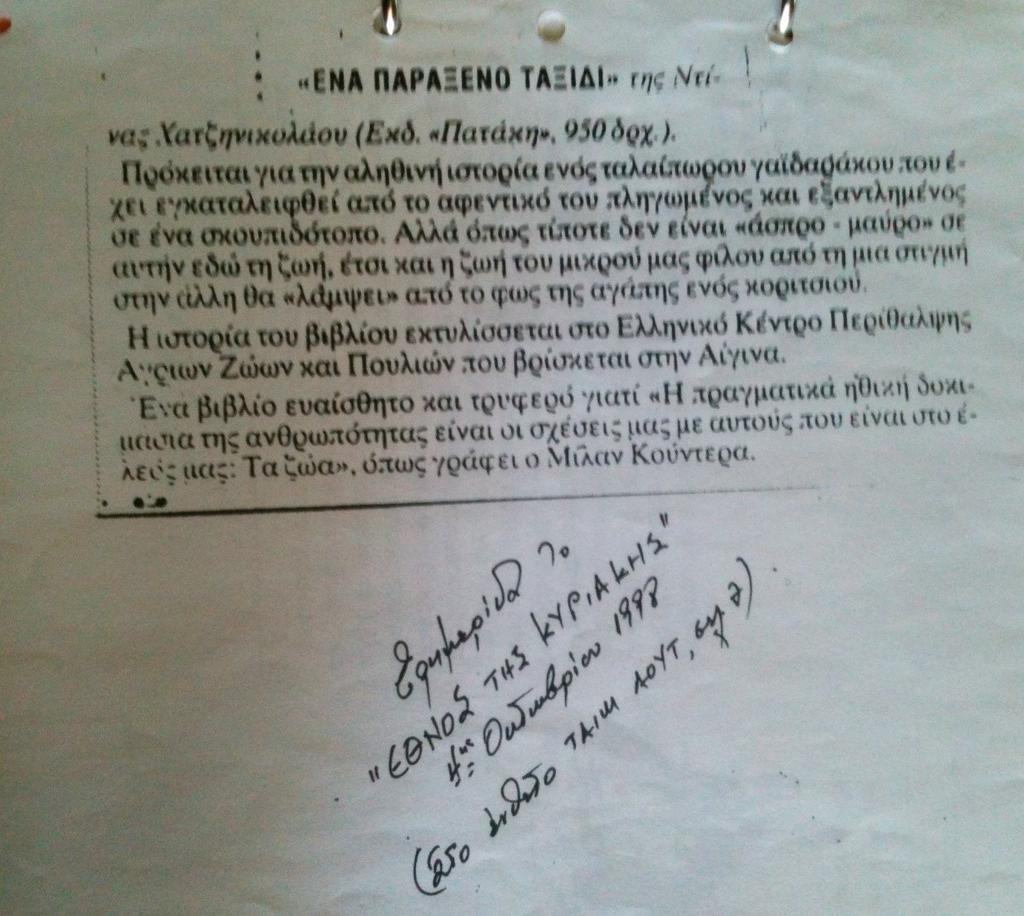 «ΕΝΑ ΠΑΡΑΞΕΝΟ ΤΑΞΙΔΙ» της Ντί-
νας Χατζηνικολάου (Εκδ. «Πατάκη», 950 δρχ.).
Πρόκειται για την αληθινή ιστορία ενός ταλαίπωρου γαϊδαράκου που έ-
χει εγκαταλειφθεί από το αφεντικό του πληγωμένος και εξαντλημένος
σε ένα σκουπιδότοπο. Αλλά όπως τίποτε δεν είναι «άσπρο - μαύρο» σε
αυτήν εδώ τη ζωή, έτσι και η ζωή του μικρού μας φίλου από τη μια στιγμή
στην άλλη θα «λάμψει» από το φως της αγάπης ενός κοριτσιού.
Η ιστορία του βιβλίου εκτυλίσσεται στο Ελληνικό Κέντρο Περίθαλψης
Άγριων Ζώων και Πουλιών που βρίσκεται στην Αίγινα.
Ένα βιβλίο ευαίσθητο και τρυφερό γιατί «Η πραγματικά ηθική δοκι-
μασία της ανθρωπότητας είναι οι σχέσεις μας με αυτούς που είναι στο έ-
λεός μας: Τα ζώα», όπως γράφει ο Μίλαν Κούντερα.
Εφημερίδα το
"ΕΘΝΟΣ ΤΗΣ ΚΥΡΙΑΚΗΣ"
4ης Οκτωβρίου 1998
(στο ένθετο ΤΑΙΜ ΑΟΥΤ, σελ 7)